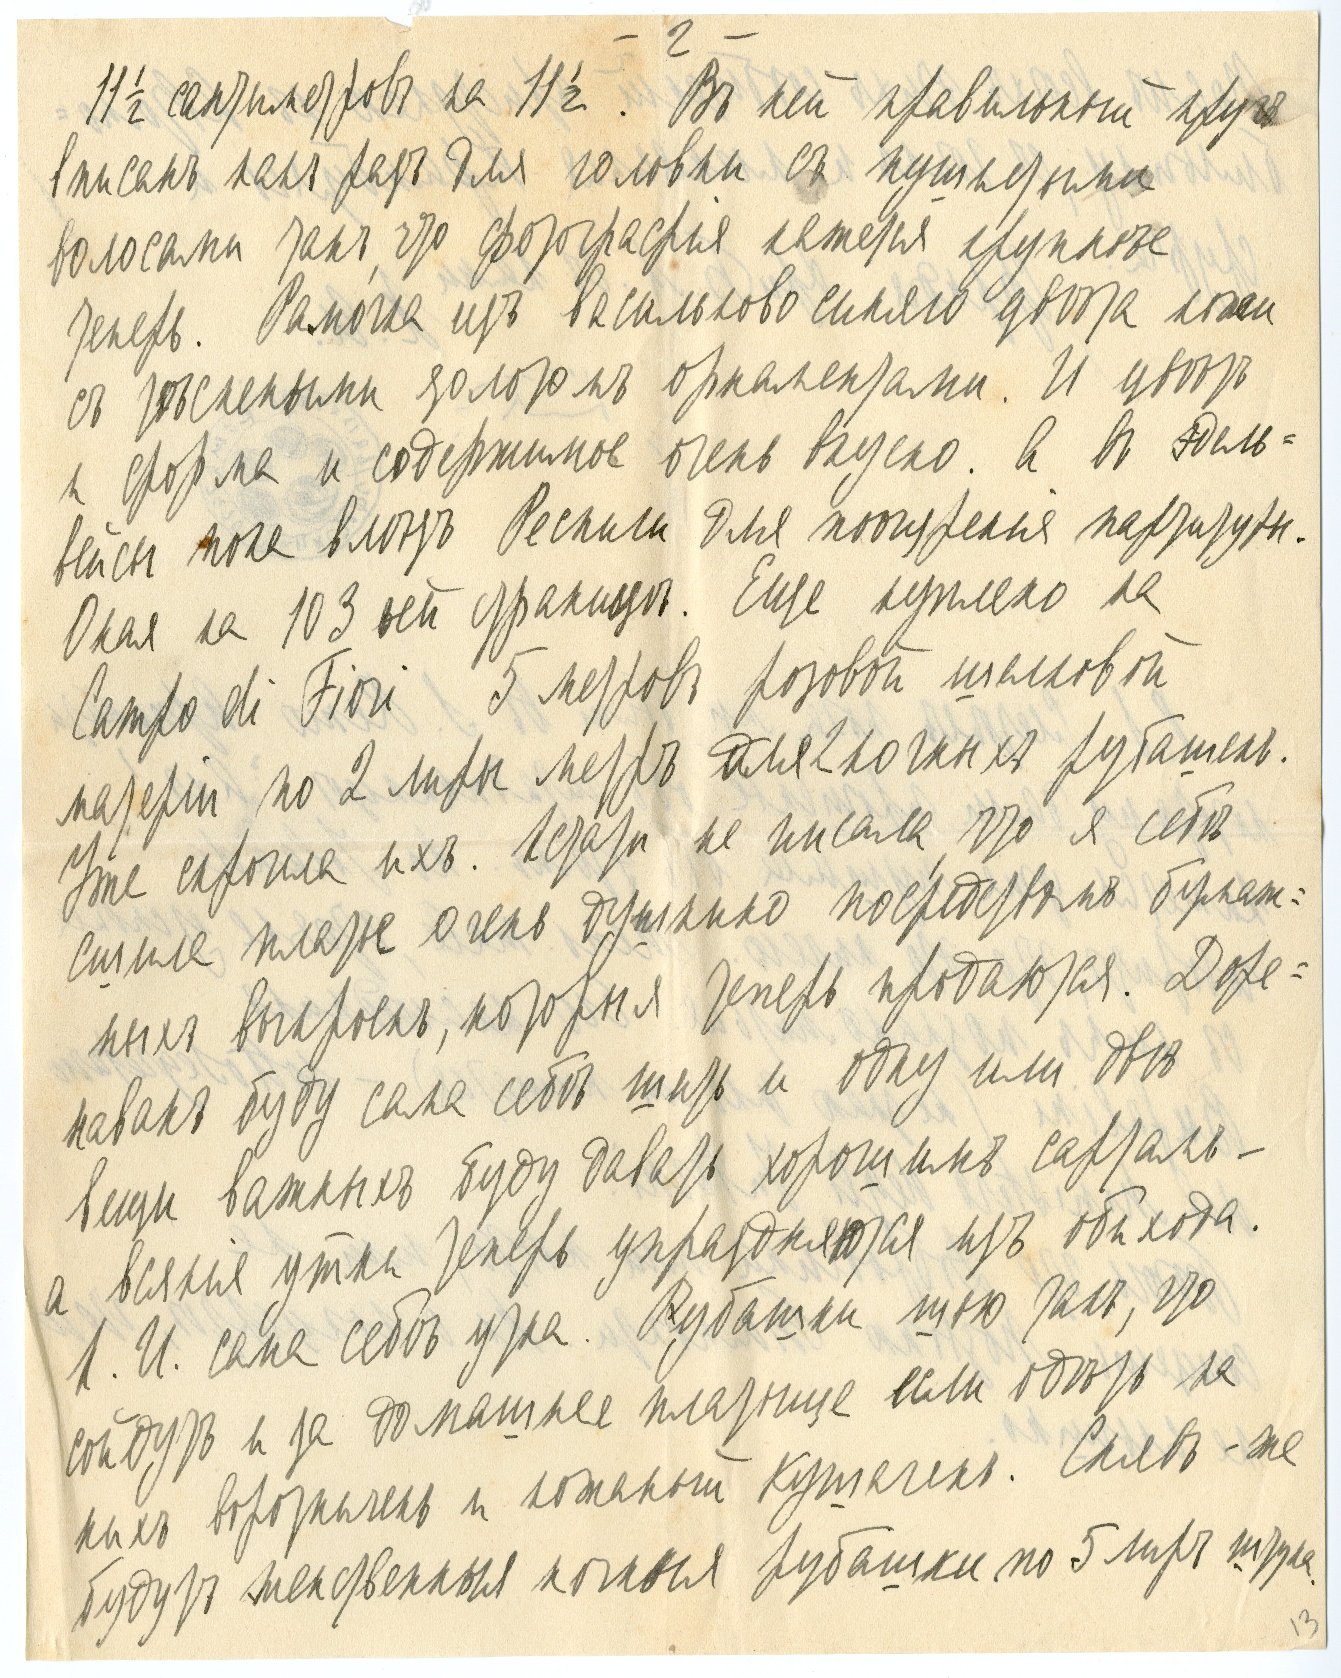 - 2 -
11½ сантиметровъ на 11½. Въ ней правильный кругъ
вписанъ какъ разъ для головки съ пушистыми
волосами такъ, что фотографія кажется крупнѣе
теперь. Рамочка изъ васильково синяго цвѣта кожи
съ тѣснеными золотомъ орнаментами. И цвѣтъ
и форма и содержимое очень вкусно. А въ Эдель=
вейсы пока вложъ Респиги для поощренія партитуры.
Окая на 103 ей страницѣ. Еще куплено на
Campo di Fiori 5 метровъ розовой шелковой
матеріи по 2 лиры метръ для 2 ночныхъ рубашекъ.
Уже скроила ихъ. Кстати не писала, что я себѣ
сшила платье очень душкино посредствомъ бумаж=
ныхъ выкроекъ, которыя теперь продаются. Доре=
навант буду сама себѣ шить и одну или двѣ
вещи важныхъ буду давать хорошимъ сарталь -
а всякія утки теперь упраздняются изъ обихода.
А. И. сама себѣ утка. Рубашки шью такъ, что
сойдутъ и за домашнее платьице если одѣть на
нихъ воротничекъ и кожаный кушачекъ. Снявъ - же
будутъ женственныя ночныя рубашки по 5 лиръ штука.
13